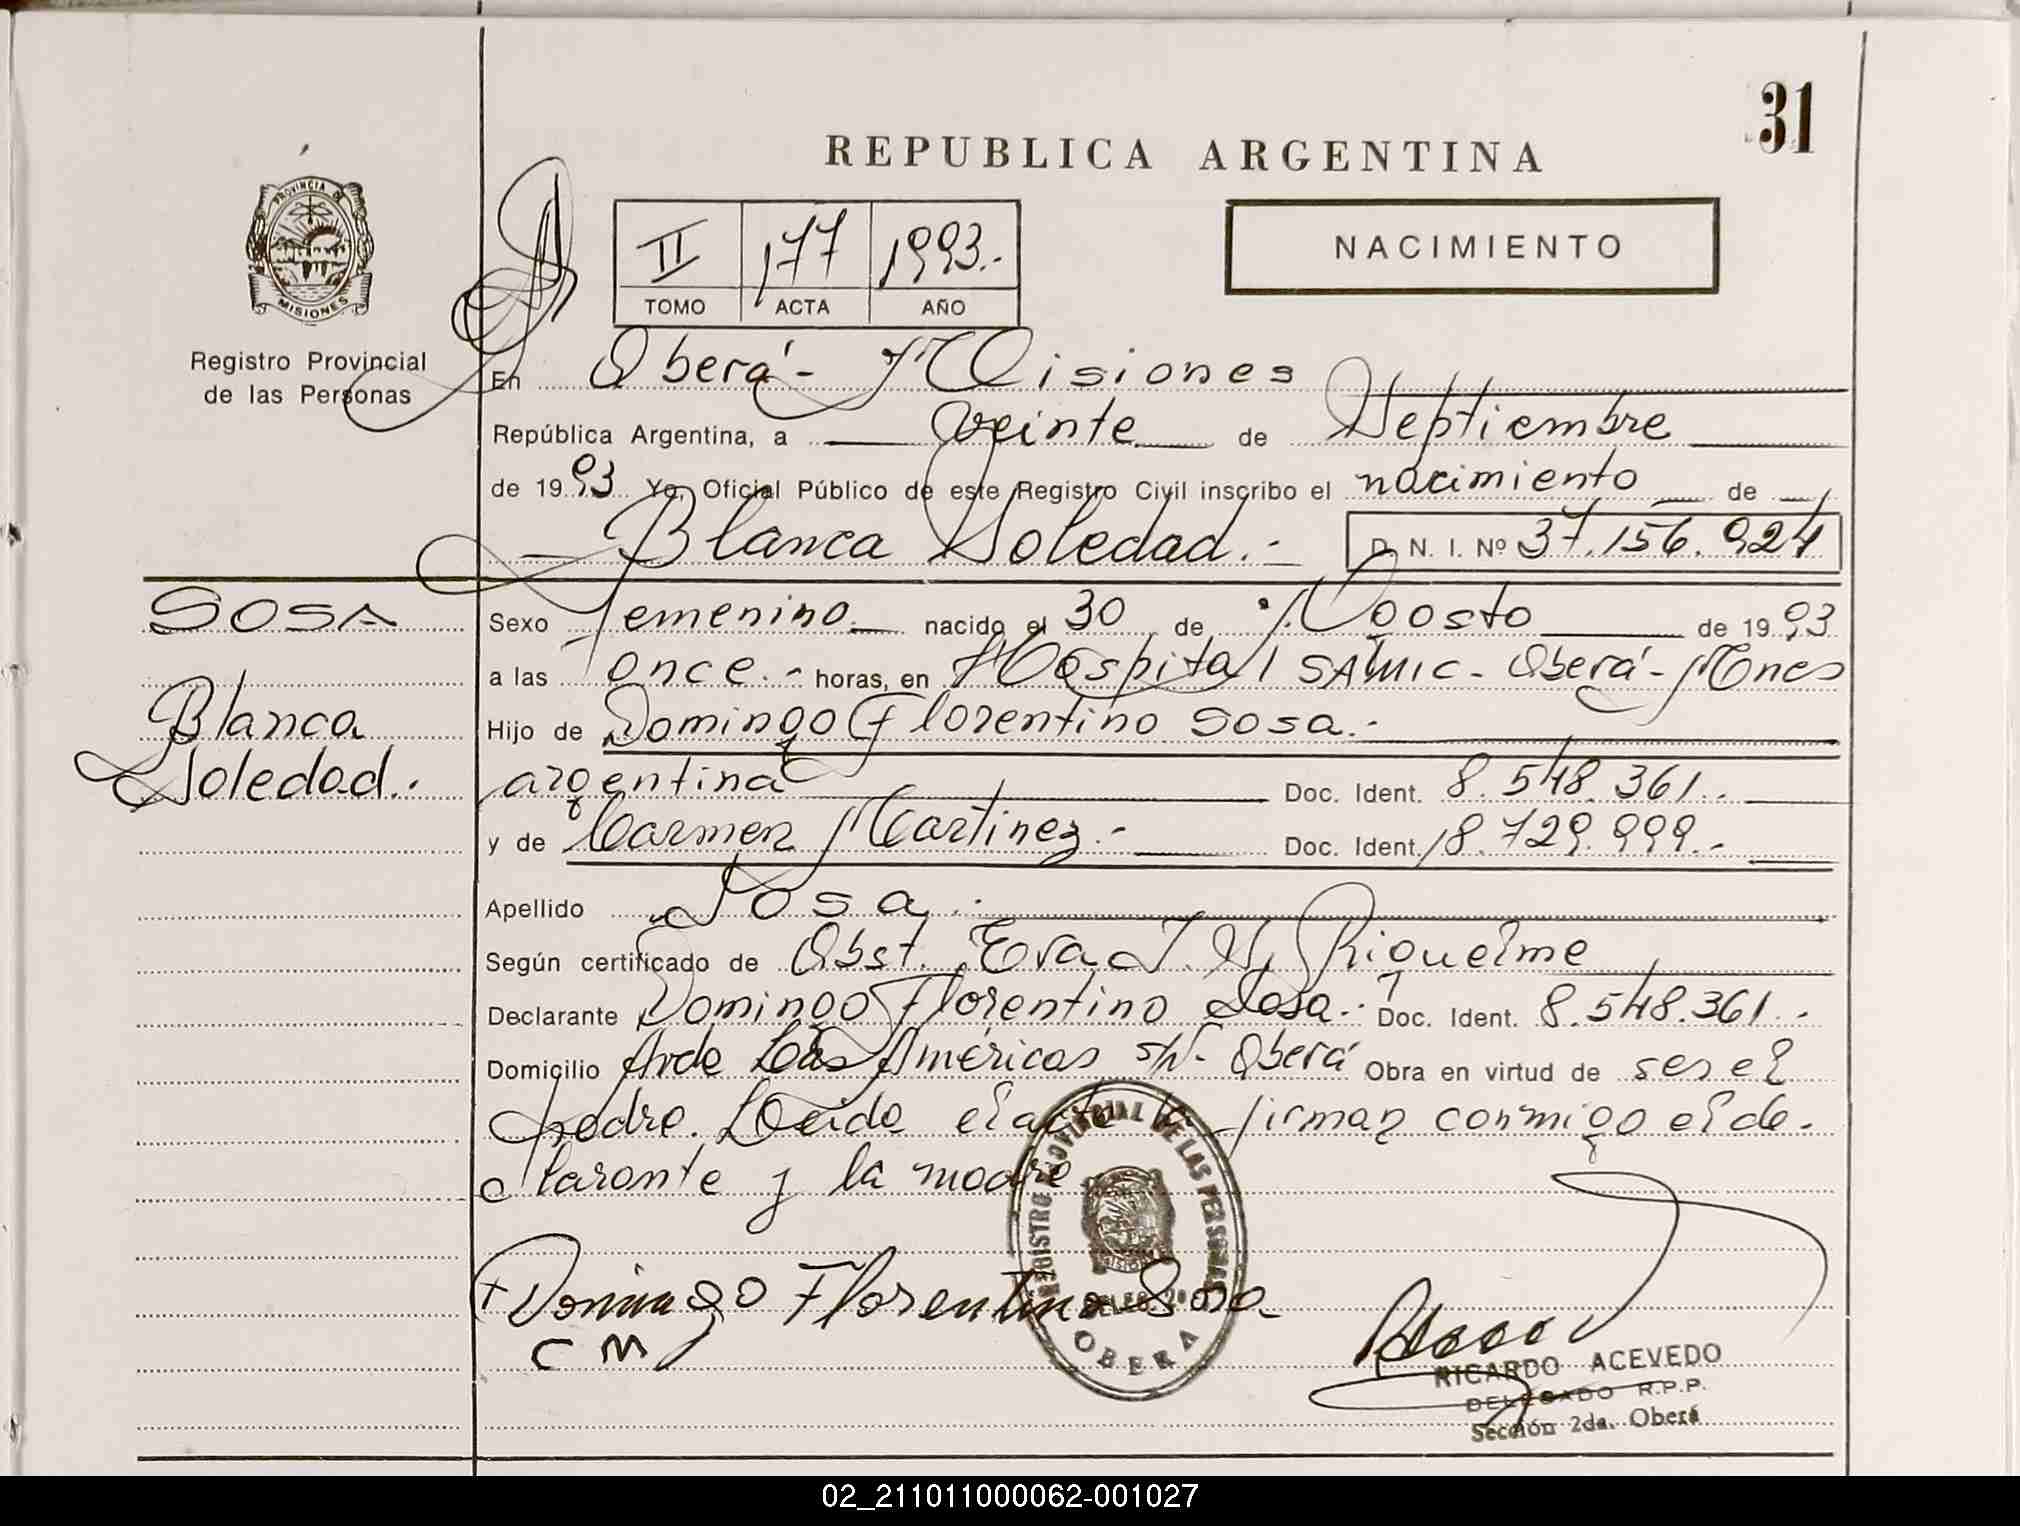 31
REPUBLICA ARGENTINA
PROVINCIA DE
MISIONES
Registro Provincial
de las Personas
II 177 1993.-
TOMO ACTA AÑO
NACIMIENTO
En Oberá - Misiones
República Argentina, a veinte de Septiembre
de 1993 Yo, Oficial Público de este Registro Civil inscribo el nacimiento de
Blanca Soledad.- D. N. I. Nº 37.156.924
SOSA
Blanca
Soledad.-
Sexo femenino nacido el 30 de Agosto de 1993
a las once.- horas, en Hospital SAMIC - Oberá - Mnes
Hijo de Domingo Florentino Sosa.-
argentina Doc. Ident. 8.548.361.-
y de Carmen Martinez.- Doc. Ident. 18.729.999.-
Apellido Sosa.-
Según certificado de Obst. Eva Riquelme
Declarante Domingo Florentino Sosa.- Doc. Ident. 8.548.361.-
Domicilio Avda Las Américas s/N- Oberá Obra en virtud de ser el
padre. Leida el acta la firman conmigo el de-
clarante y la madre
REGISTRO PROVINCIAL DE LAS PERSONAS
MISIONES
OBERA
Domingo Florentino Sosa
C M
RICARDO ACEVEDO
DELEGADO R.P.P.
Sección 2da. Oberá
02_211011000062-001027